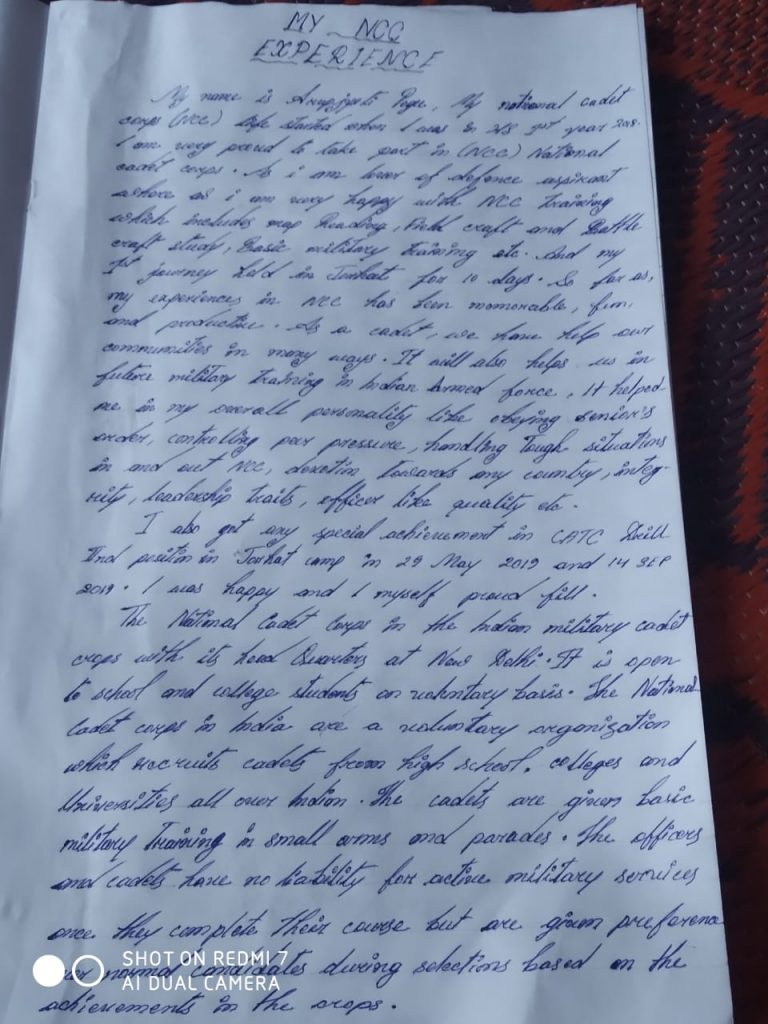 MY NCC
EXPERIENCE
My name is Anupjyoti Pegu, My national cadet
corps (NCC) life started when I was in H.S 1st year 2018.
I am very proud to take part in (NCC) National
cadet corps. As i am lover of defence aspirant
where as i am very happy with NCC training
which includes map Reading, Field craft and Battle
craft study, Basic military training etc. And my
1st journey held in Jorhat for 10 days. So far as,
my experiences in NCC has been memorable, fun,
and productive. As a cadet, we have help our
communities in many ways. It will also helps us in
future military training in Indian Armed force, It helped
me in my overall personality like obeying senior's
order, controlling peer pressure, handling Tough situations
in and out NCC, devotin towards my country, integ-
rity, leadership traits, officer like quality etc.
I also got any special achievement in CATC Drill
IInd position in Jorhat camp in 29 May 2019 and 14 SEP
2019. I was happy and I myself proud fill.
The National Cadet Corps in the Indian military cadet
crops with its head Quarters at New Delhi. It is open
to school and college students on voluntary basis. The National
Cadet corps in India are a voluntary organization
which recruits cadets from high school, colleges and
Universities all over Indian. The cadets are given basic
military Training in small arms and parades. The officers
and cadets have no liability for active military services
once they complete their course but are given preference
over normal candidates during selections based on the
achievements in the crops.
SHOT ON REDMI 7
AI DUAL CAMERA